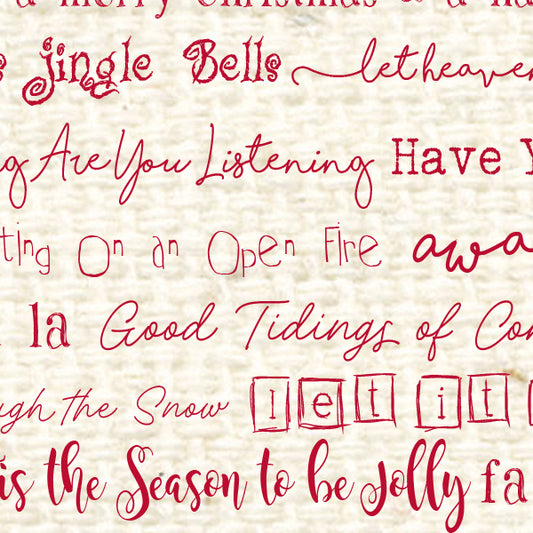 a merry Christmas & a ha
s Jingle Bells let heaven
ng Are You Listening Have Y
ting On an Open Fire awa
la Good Tidings of Com
ugh the Snow let it
is the Season to be Jolly fa